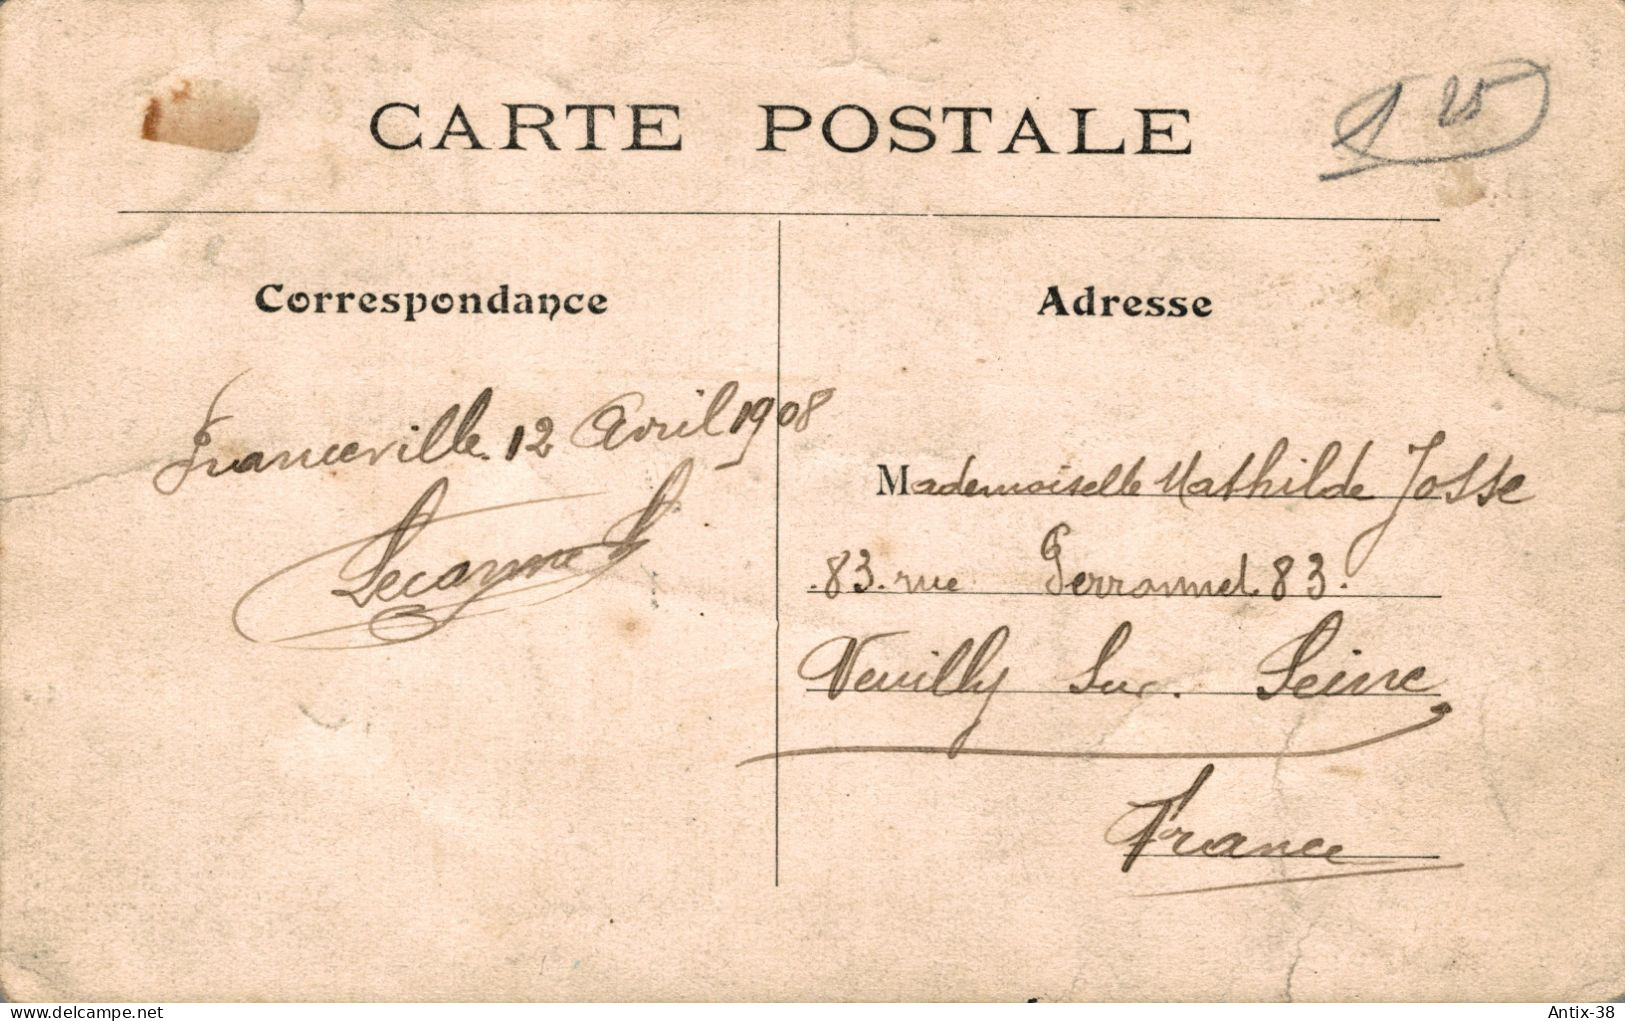 CARTE POSTALE
25
Correspondance
Adresse
Franceville. 12 Avril 1908
Mademoiselle Mathilde Josse
83. rue Perronnet. 83.
Neuilly Sur. Seine
France
delcampe.net
Antix-38